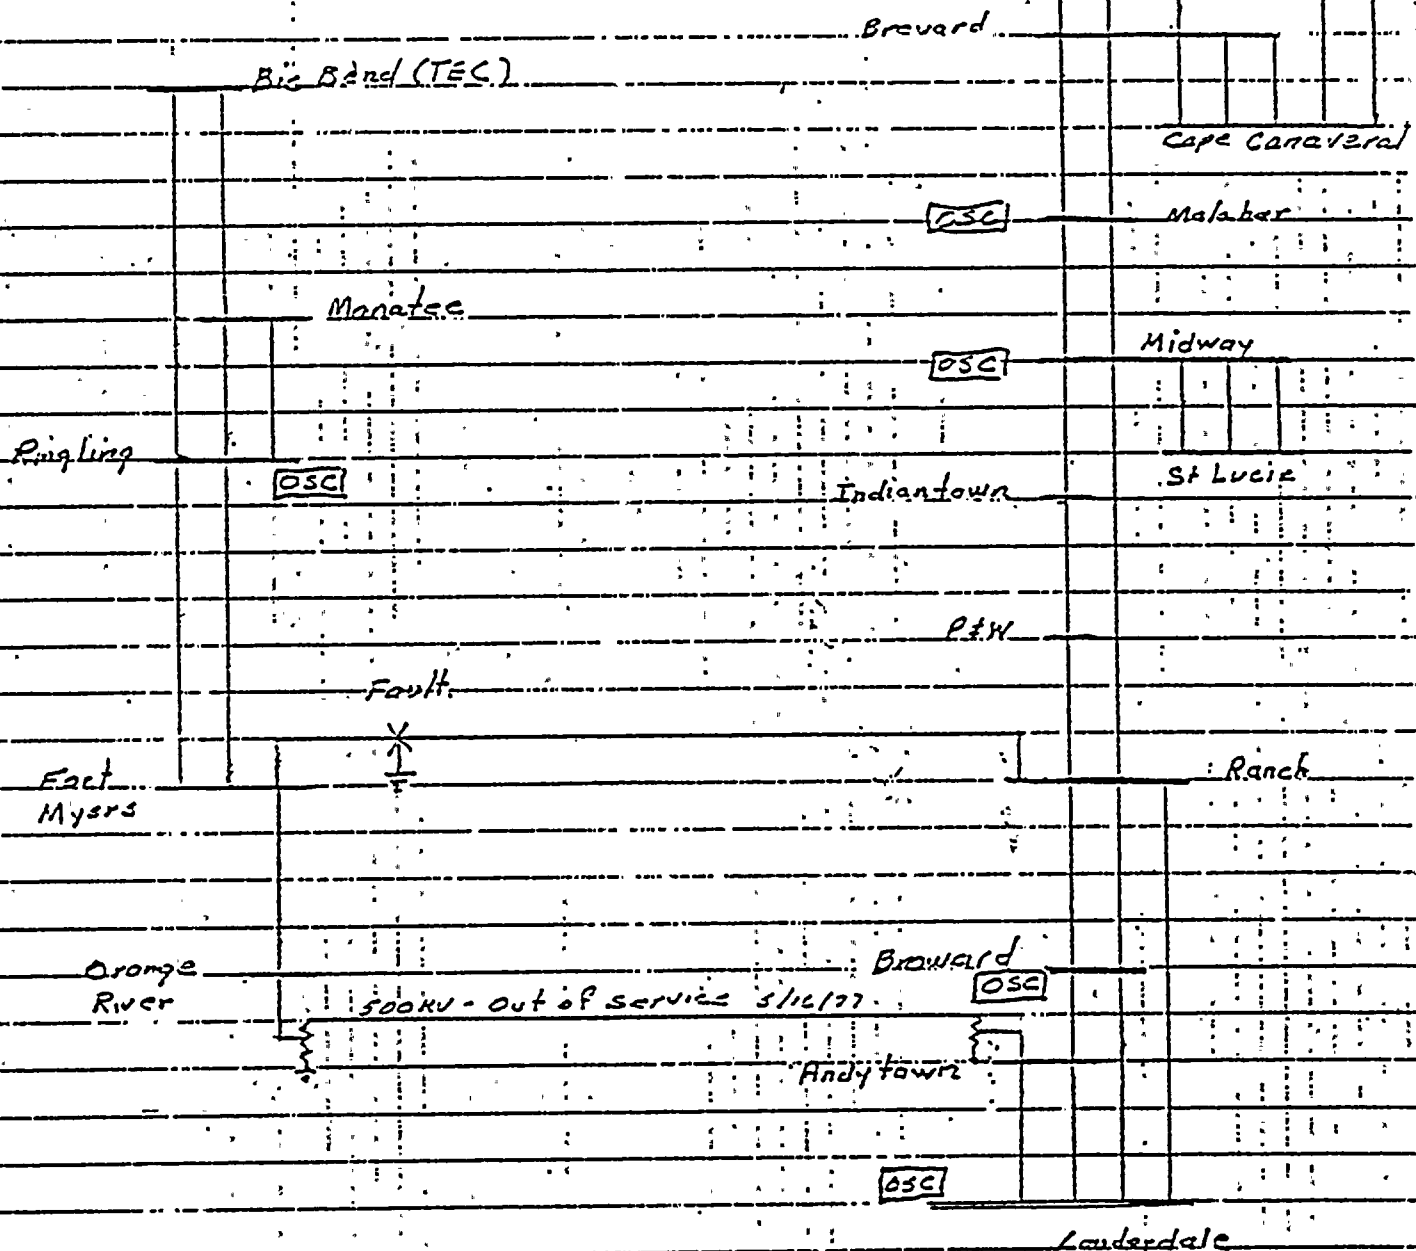 Brevard
Big Bend (TEC)
Cape Canaveral
OSC
Malabar
Manatee
Midway
OSC
Ringling
OSC
St Lucie
Indiantown
P&W
Fault
Fort
Myers
Ranch
Orange
River
Broward
OSC
500KV - Out of Service 5/16/77
Andytown
OSC
Lauderdale